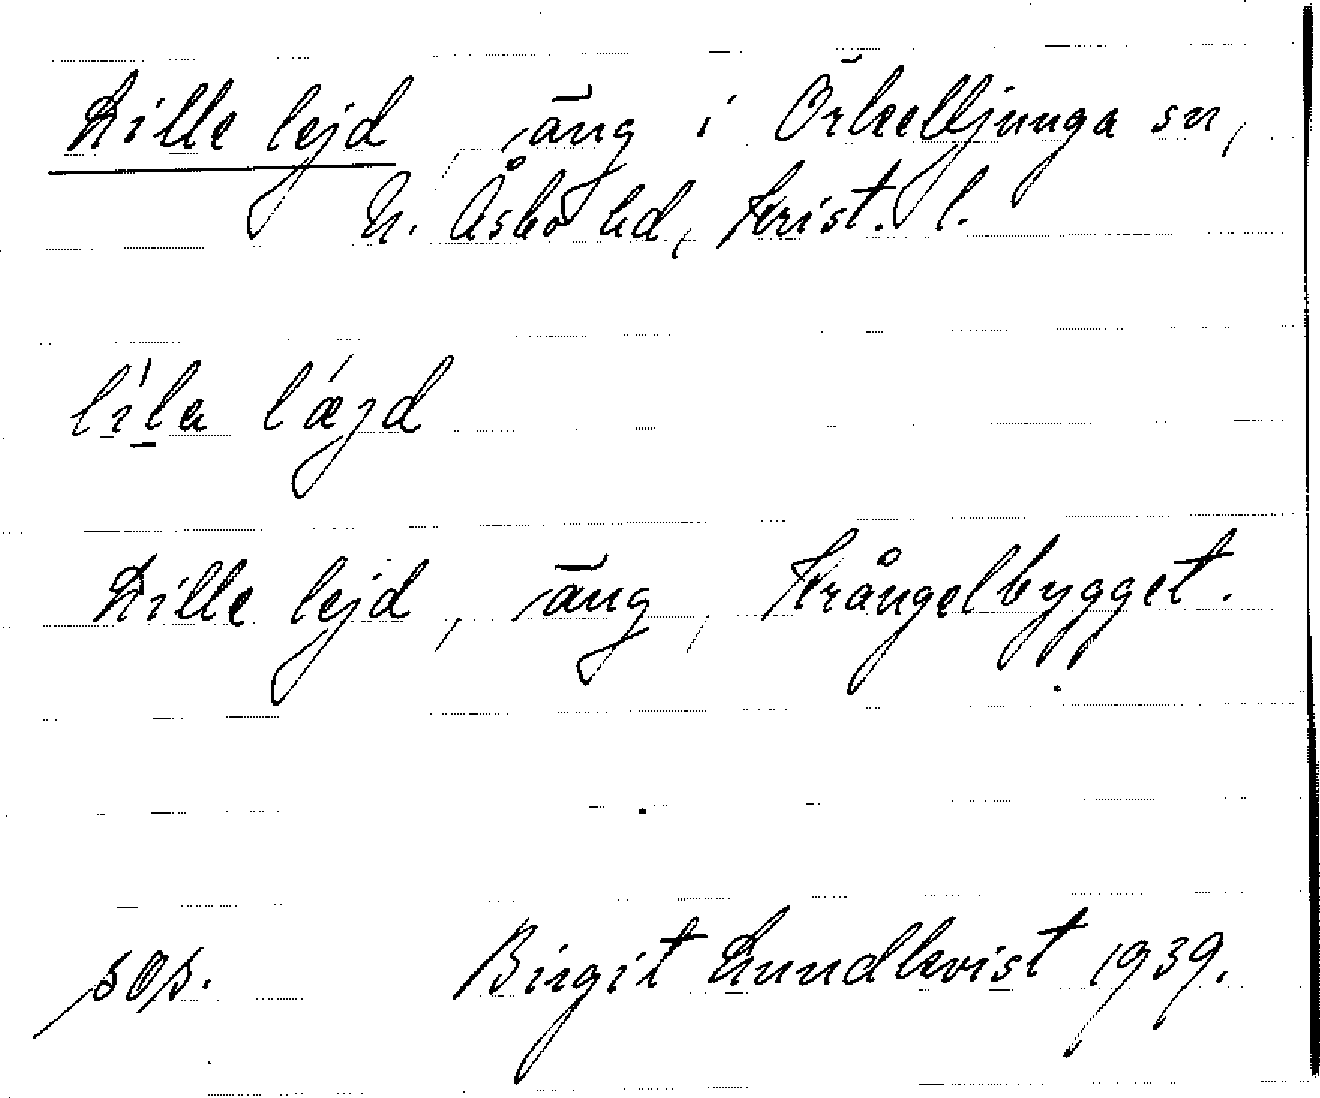 Lille lejd, äng i Örkelljunga sn,
N. Åsbo hd, Krist. l.
lila læjd
Lille lejd, äng, Krångelbygget.
sos. Birgit Lundkvist 1939.